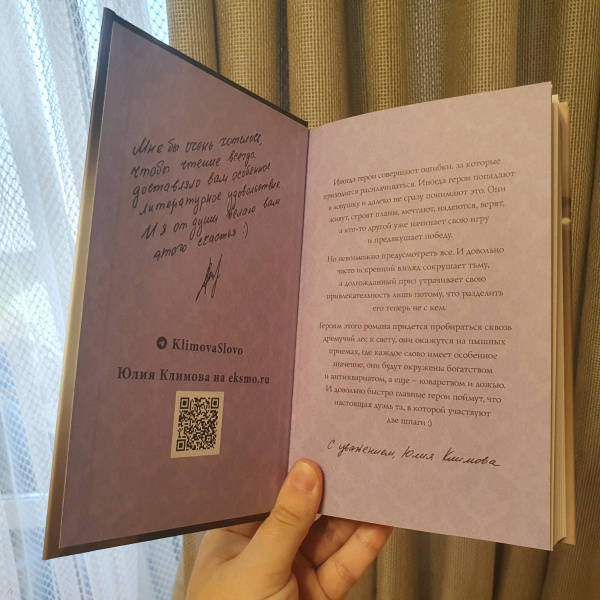 Мне бы очень хотелось,
чтобы чтение всегда
доставляло вам особенное
литературное удовольствие
И я от души желаю вам
этого счастья :)
KlimovaSlovo
Юлия Климова на eksmo.ru
Иногда герои совершают ошибки, за которые
приходится расплачиваться. Иногда герои попадают
в ловушку и далеко не сразу понимают это. Они
живут, строят планы, мечтают, надеются, верят,
а кто-то другой уже начинает свою игру
и предвкушает победу.
Но невозможно предусмотреть все. И довольно
часто искренний взгляд сокрушает тьму,
а долгожданный приз утрачивает свою
привлекательность лишь потому, что разделить
его теперь не с кем.
Героям этого романа придется пробираться сквозь
дремучий лес к свету, они окажутся на пышных
приемах, где каждое слово имеет особенное
значение, они будут окружены богатством
и антиквариатом, а еще – коварством и ложью.
И довольно быстро главные герои поймут, что
настоящая дуэль та, в которой участвуют
две шпаги :)
С уважением, Юлия Климова